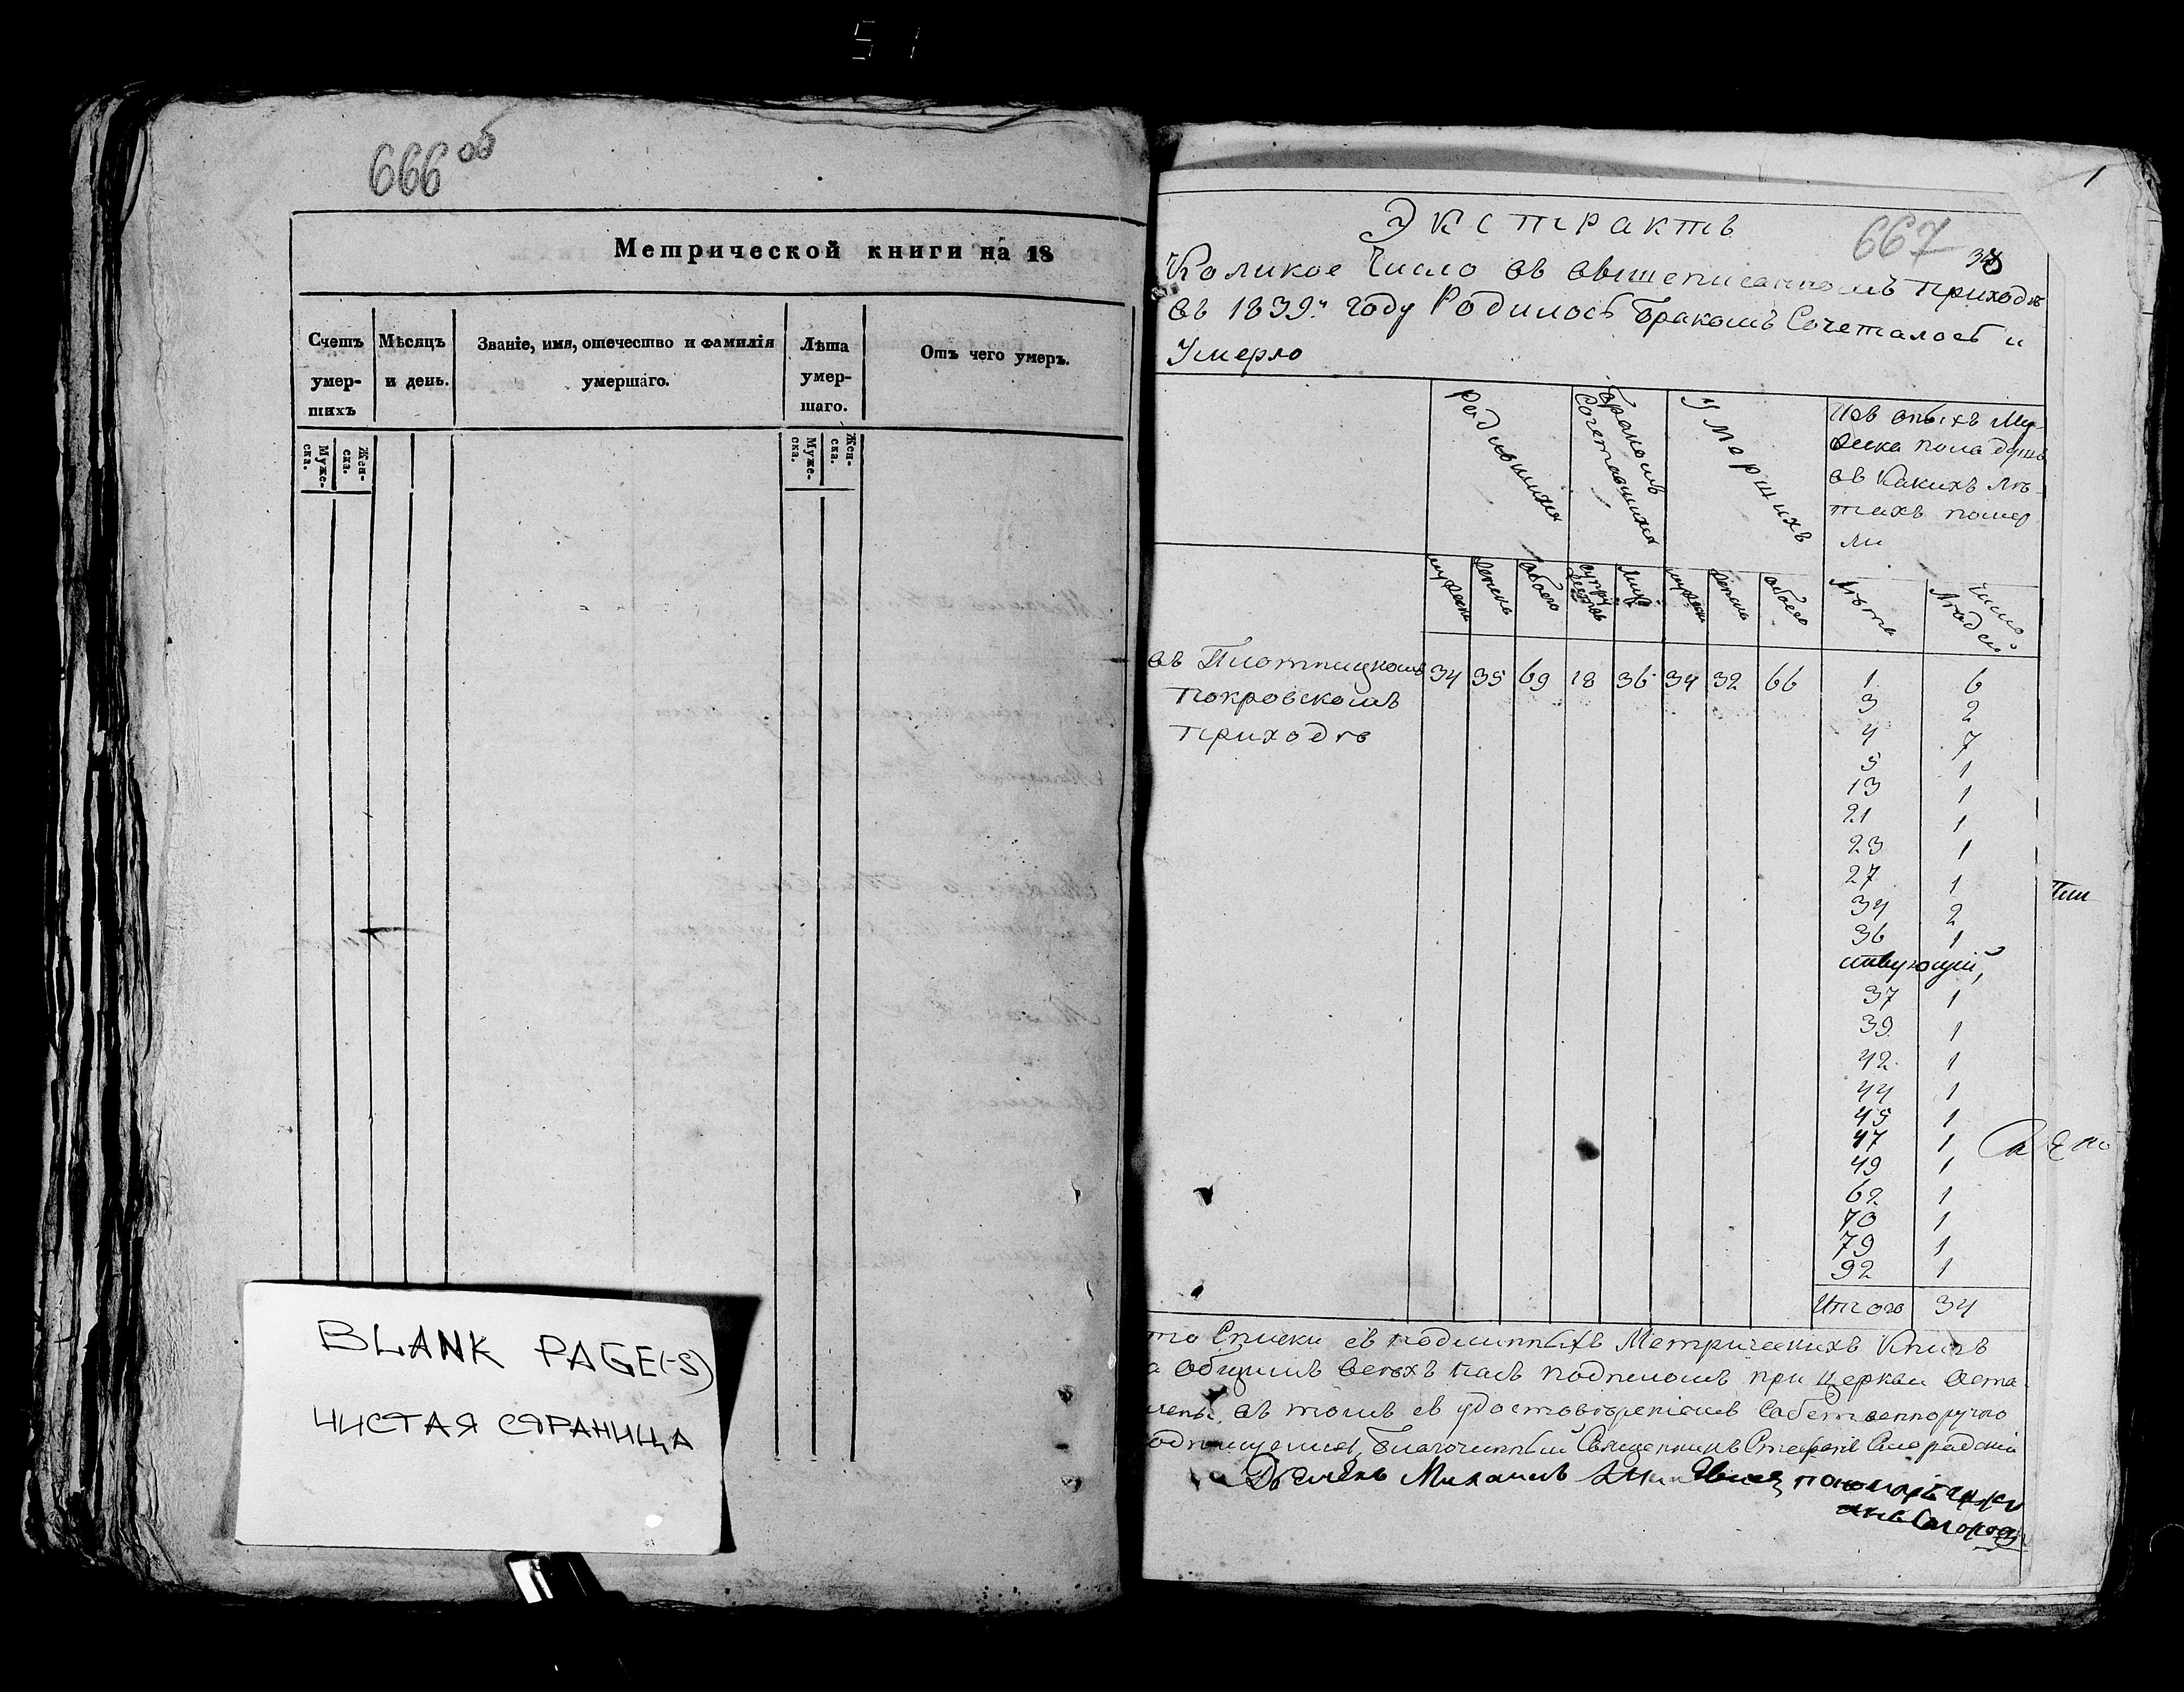 51
666 об
Метрической книги на 18
Счетъ умер- шихъ
Мѣсяцъ и день.
Званіе, имя, отечество и фамилія умершаго.
Лѣта умер- шаго.
Отъ чего умеръ.
Муже- ска.
Жен- ска.
Муже- ска.
Жен- ска.
BLANK PAGE(-S)
ЧИСТАЯ СТРАНИЦА
1
667
Экстрактъ
Коликое Число въ вышеписанномъ приходѣ
въ 1839. году Родилось бракомъ Сочеталось и
Умерло
Родившихся
бракомъ Сочетавшихся
Умерщихъ
Изъ оныхъ Му-
жеска пола душъ
въ Какихъ лѣ-
тахъ помер
ли
мужеска
женска
обоего
супружествъ
лицъ
мужеска
женска
обоего
Лѣта
Число Людей
въ Плотницкомъ 34 35 69 18 36 34 32 66 1 6
покровскомъ 3 2
приходѣ 4 7
5 1
13 1
21 1
23 1
27 1
34 2
36 1
ствующій,
37 1
39 1
42 1
44 1
45 1
47 1
49 1
62 1
70 1
79 1
92 1
Итого 34
то Списки съ подлинныхъ Метрическихъ Книгъ
общимъ всѣхъ насъ подписомъ при церкви оста
лены, въ томъ съ удостовѣреніемъ Собственноручно
одпишемся, Благочинный Священникъ Стефанъ
Дьячекъ Михаилъ
пономарь